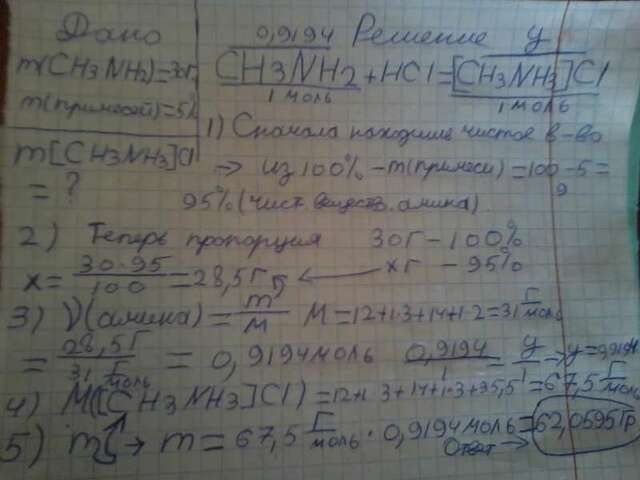 Дано
m(CH3NH2)=30г
m(примесей)=5%
m[CH3NH3]Cl
= ?
Решение
0,9194 y
CH3NH2 + HCl = [CH3NH3]Cl
1 моль 1 моль
1) Сначала находим чистое в-во
⇒ из 100% - m(примеси) = 100 - 5 =
95% (чист веществ. амина)
2) Теперь пропорция 30г - 100%
xг - 95%
x = 30·95/100 = 28,5г
3) ν(амина) = m/M M = 12+1·3+14+1·2 = 31 г/моль
= 28,5г / 31 г/моль = 0,9194 моль 0,9194/1 = y/1 ⇒ y = 0,9194
4) M([CH3NH3]Cl) = 12+1·3+14+1·3+35,5 = 67,5 г/моль
5) m → m = 67,5 г/моль · 0,9194 моль = 62,0595 гр
Ответ →